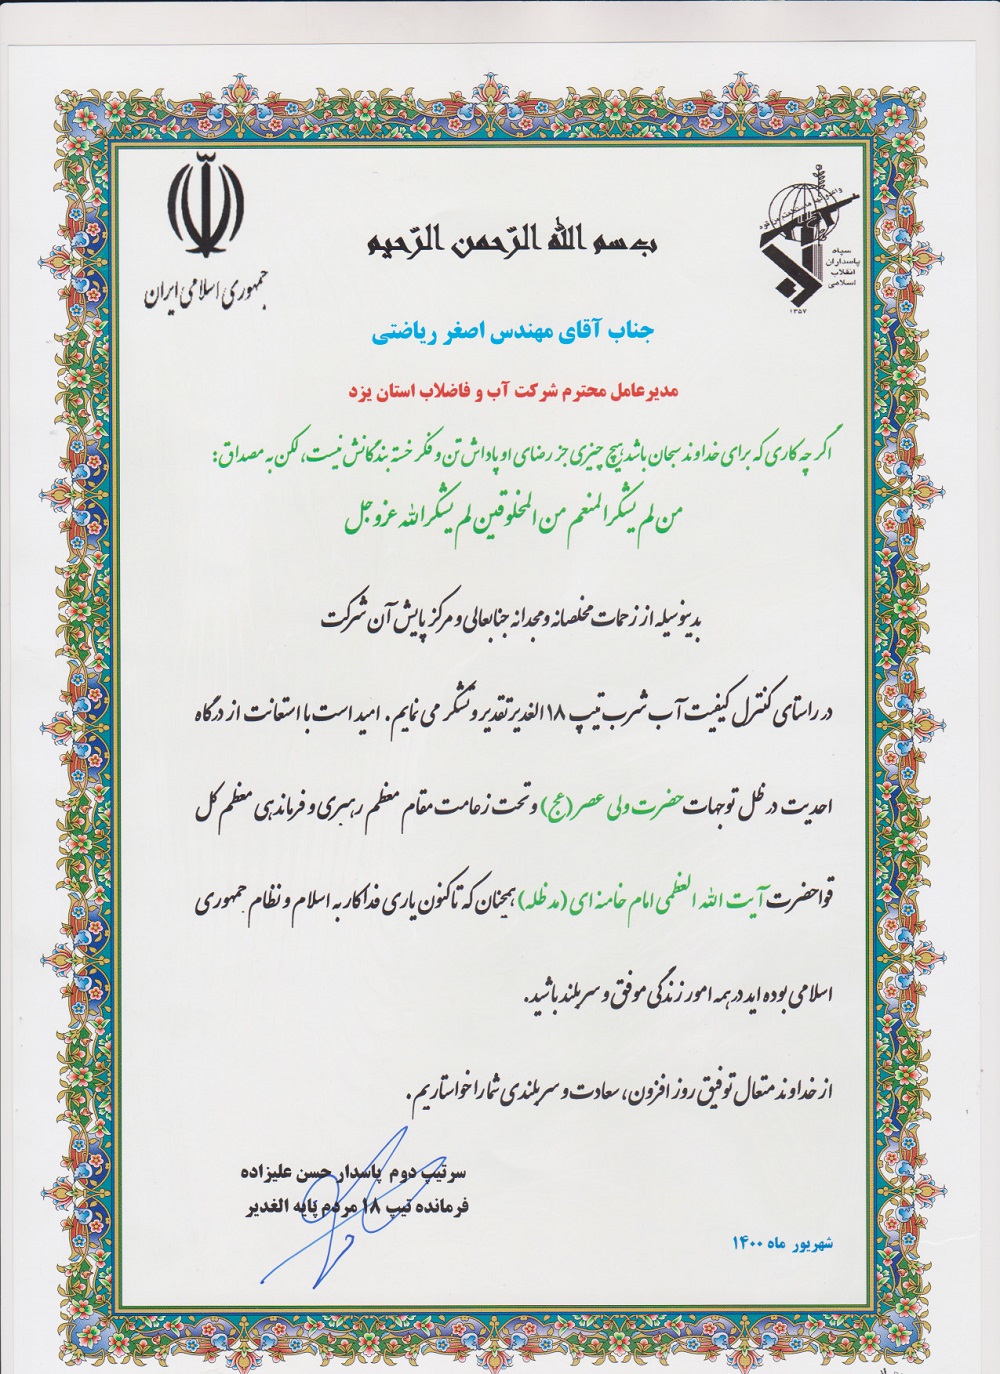 جمهوری اسلامی ایران
سپاه
پاسداران
انقلاب
اسلامی
۱۳۵۷
بسم الله الرّحمن الرّحیم
جناب آقای مهندس اصغر ریاضتی
مدیرعامل محترم شرکت آب و فاضلاب استان یزد
اگر چه کاری که برای خداوند سبحان باشد هیچ چیزی جز رضای او پاداش تن و فکر خسته بندگانش نیست، لکن به مصداق:
من لم یشکر المنعم من المخلوقین لم یشکر الله عزوجل
بدینوسیله از زحمات مخلصانه و مجدانه جنابعالی و مرکز پایش آن شرکت
در راستای کنترل کیفیت آب شرب تیپ ۱۸ الغدیر تقدیر و تشکر می نمایم. امید است با استعانت از درگاه
احدیت در ظل توجهات حضرت ولی عصر (عج) و تحت زعامت مقام معظم رهبری و فرماندهی معظم کل
قوا حضرت آیت الله العظمی امام خامنه ای (مدظله) همچنان که تاکنون یاری فداکار به اسلام و نظام جمهوری
اسلامی بوده اید در همه امور زندگی موفق و سربلند باشید.
از خداوند متعال توفیق روز افزون، سعادت و سربلندی شما را خواستاریم.
سرتیپ دوم پاسدار حسن علیزاده
فرمانده تیپ ۱۸ مردم پایه الغدیر
شهریور ماه ۱۴۰۰